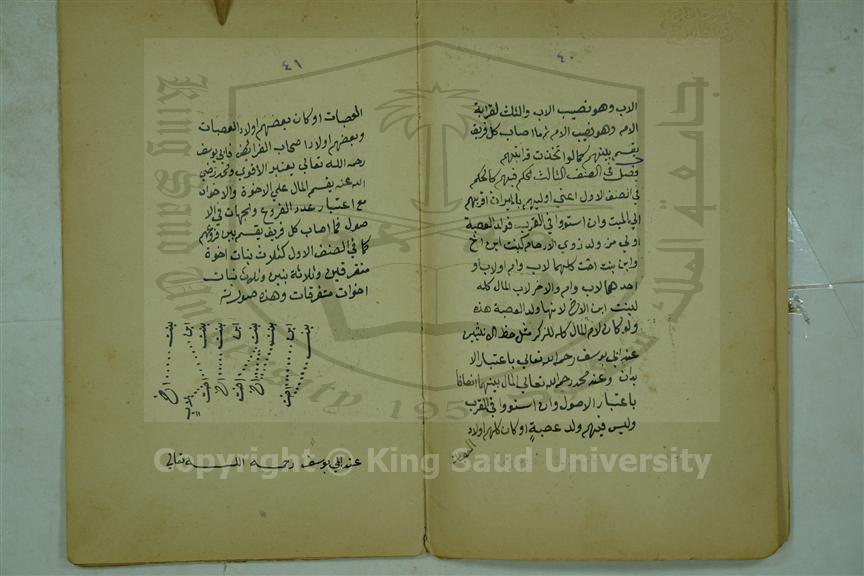 ٤٠
الاب وهو نصيب الاب والثلث لقرابة
الام وهو نصيب الام ثم ما اصاب كل فريق
يقسم بينهم كما لو اتحدت قرابتهم
فصل في الصنف الثالث الحكم فيهم كالحكم
في الصنف الاول اعني اوليهم بالميراث اقربهم
الي الميت وان استووا في القرب فولد العصبة
اولي من ولد زوي الارحام كبنت ابن اخ
وابن بنت اخت كلهما لاب وام اولاب و
احدهما لاب وام والاخر لاب المال كله
لبنت ابن الاخ لانها ولد العصبة هذه
ولو كان لام المال كله للذكر مثل حظ الانثيين
عند ابي يوسف رحمه الله تعالي باعتبار الا
بدان وعند محمد رحمه الله تعالي المال بينهما انصافا
باعتبار الاصول وان استووا في القرب
وليس فيهم ولد عصبةٍ او كان كلهم اولاد
٤١
العصبات او كان بعضهم اولاد العصبات
وبعضهم اولاد اصحاب الفرائض فابي يوسف
رحمه الله تعالي يعتبر الاقوي ومحمد رضي
الله عنه يقسم المال علي الاخوة والاخوات
مع اعتبار عدد الفروع والجهات في الا
صول فما اصاب كل فريق يقسم بين فروعهم
كما في الصنف الاول كثلاث بنات اخوة
متفرقين وثلاثة بنين وثلاث بنات
اخوات متفرقات وهذه صورته
بنت ابن بنت بنت ابن بنت بنت ابن بنت
اخت اخ اخت اخت اخ اخت اخ
عند ابي يوسف رحمه الله تعالي
Copyright © King Saud University
King Saud University
جامعة الملك سعود
1957